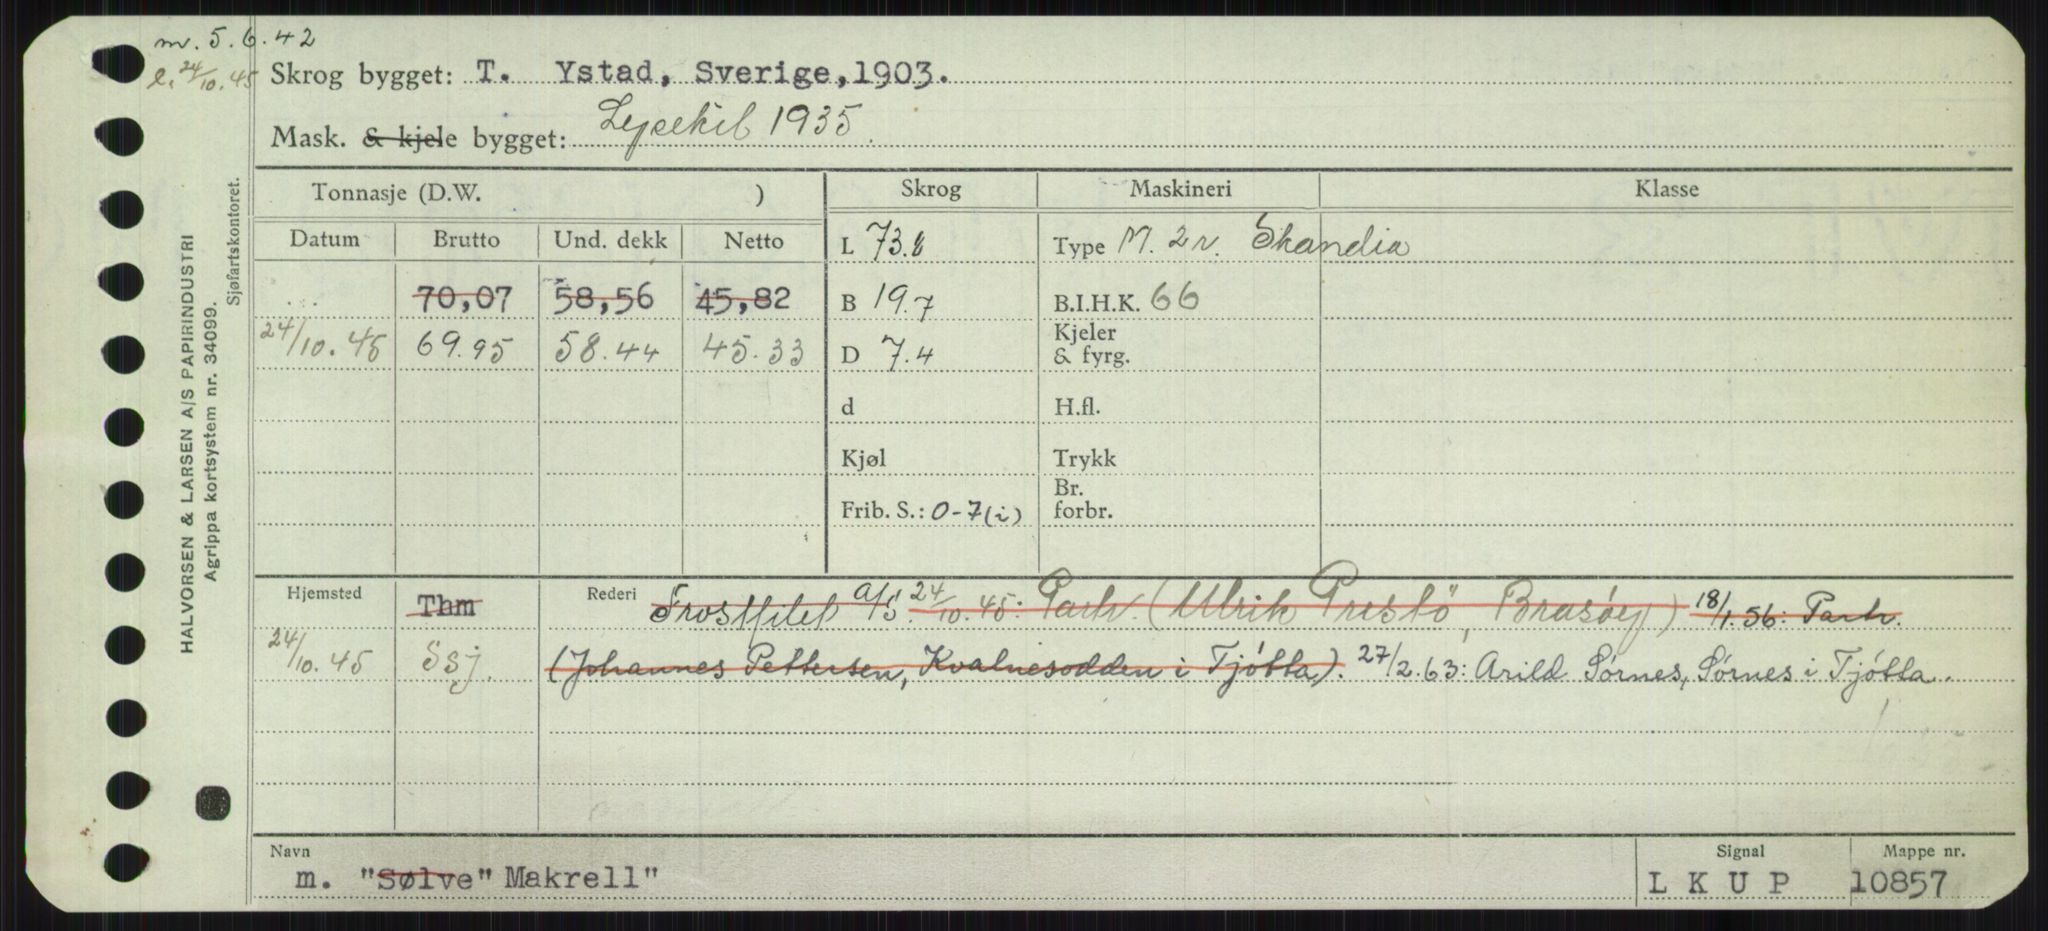 m. 5.6.42
l. 24/10.45
Skrog bygget: T. Ystad, Sverige,1903.
Mask. & kjele bygget: Lysekil 1935.
Tonnasje (D.W. )
Skrog
Maskineri
Klasse
Datum Brutto Und. dekk Netto
L 73.8
Type M. 2 v. Skandia
70,07 58,56 45,82
B 19.7
B.I.H.K. 66
24/10.45 69.95 58.44 45.33
D 7.4
Kjeler
& fyrg.
d
H.fl.
Kjøl
Trykk
Frib. S.: 0-7(i)
Br.
forbr.
Hjemsted Thm
Rederi Frostfilet A/S. 24/10.45: Partr. (Ulrik Prestö, Brasöy) 18/1.56: Partr.
24/10.45 Ssj. (Johannes Pettersen, Kvalnesodden i Tjótta). 27/2.63: Arild Sórnes, Sórnes i Tjótta.
Navn
m. "Sølve" Makrell"
Signal
L K U P
Mappe nr.
10857
HALVORSEN & LARSEN A/S PAPIRINDUSTRI
Agrippa kortsystem nr. 34099.
Sjøfartskontoret.